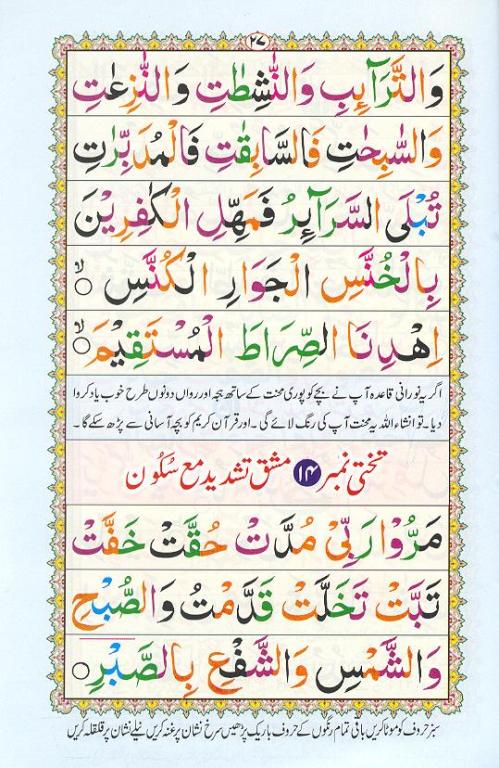 ٢٧
وَالتَّرَآئِبِ وَالنّٰشِطٰتِ وَالنّٰزِعٰتِ
وَالسّٰبِحٰتِ فَالسّٰبِقٰتِ فَالْمُدَبِّرٰتِ
تُبْلَى السَّرَآئِرُ فَمَهِّلِ الْكٰفِرِيْنَ
بِالْخُنَّسِ الْجَوَارِ الْكُنَّسِ ۙ
اِهْدِنَا الصِّرَاطَ الْمُسْتَقِيْمَ ۙ
اگر یہ نورانی قاعدہ آپ نے بچے کو پوری محنت کے ساتھ ہجہ اور رواں دونوں طرح خوب یاد کروا
دیا۔ تو انشاء اللہ یہ محنت آپ کی رنگ لائے گی۔ اور قرآن کریم کو بچہ آسانی سے پڑھ سکے گا۔
تختی نمبر ۱۴ مشق تشدید مع سُکُون
مَرُّوْا رَبِّيْ مُدَّتْ حُقَّتْ خَفَّتْ
تَبَّتْ تَخَلَّتْ قَدَّمْتُ وَالصُّبْحِ
وَالشَّمْسِ وَالشَّفْعِ بِالصَّبْرِ ○
سبز حروف کو موٹا کریں باقی تمام رنگوں کے حروف باریک پڑھیں سرخ نشان پر غنہ کریں نیلے نشان پر قلقلہ کریں